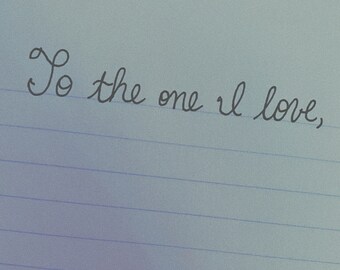 To the one I love,